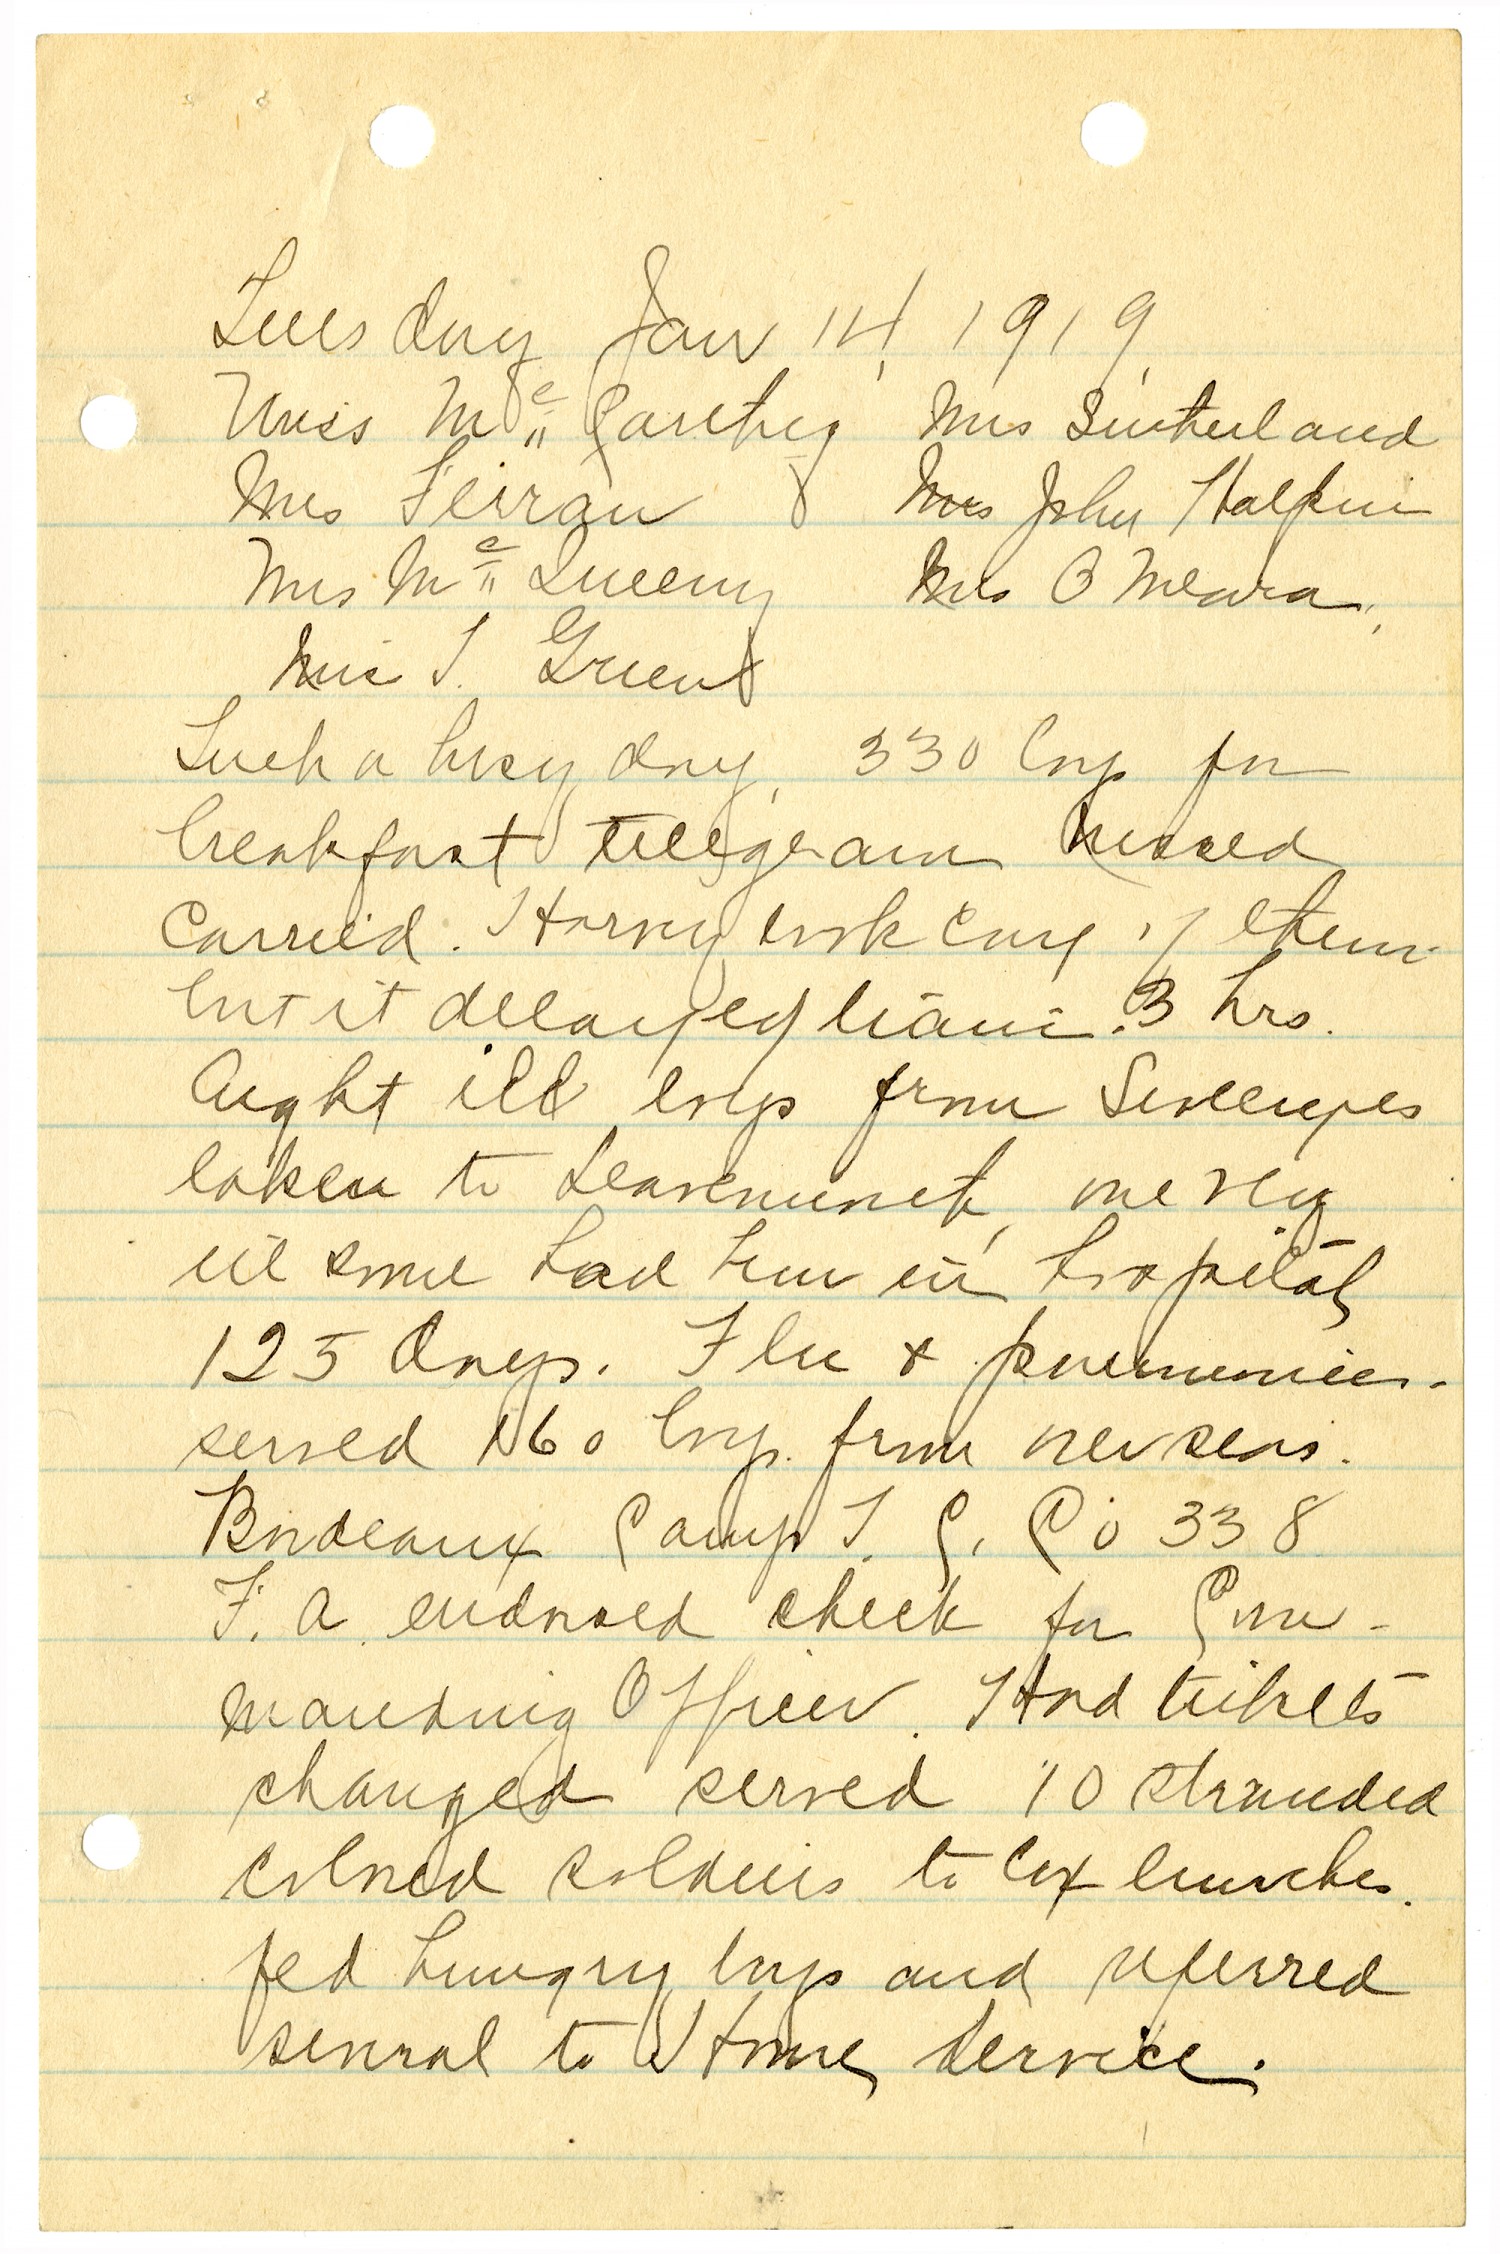 Tuesday Jan 14, 1919,
Miss Mc Carthy Mrs Sutherland
Mrs Ferran Mrs John Halpin
Mrs Mc Queeny Mrs O Meara,
Miss T. Green
Such a busy day, 330 boys for
breakfast telegram missed
Carried. Harvey took care of them
but it delayed train. 3 hrs.
Aught ill boys from
taken to Leavenworth, one very
ill some had been in hospital
125 days. Flu & pneumonia.
served 160 boys. from overseas.
Bordeaux Camp T. C. Co 338
F. A. endorsed check for Com-
manding Officer. Had tickets
changed served 10 stranded
colored soldiers to box lunches.
fed hungry boys and referred
several to Home Service.